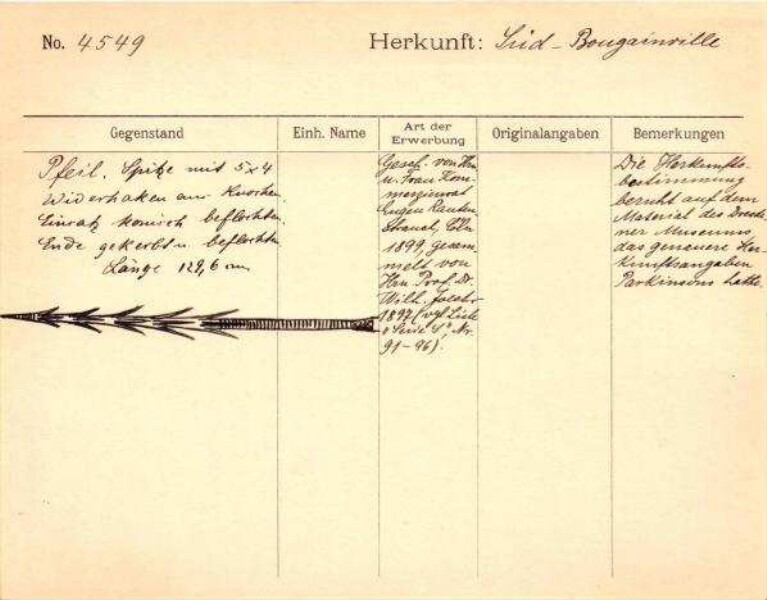 No. 4549
Herkunft: Süd-Bougainville
Gegenstand
Einh. Name
Art der
Erwerbung
Originalangaben
Bemerkungen
Pfeil. Spitze mit 5x4
Widerhaken aus Knochen.
Einsatz konisch beflochten.
Ende gekerbt u. beflochten.
Länge 129,6 cm
Gesch. von Hn
u. Frau Kom-
merzienrat
Eugen Rauten-
strauch, Cöln
1899, gesam-
melt von
Hn Prof. Dr.
Wilh. Joest
1897 (vgl Liste
"Serie
91-96).
Die Herkunfts-
bestimmung
beruht auf dem
Material des Dresde-
ner Museums,
das genauere Her-
kunftsangaben
Parkinsons hatte.